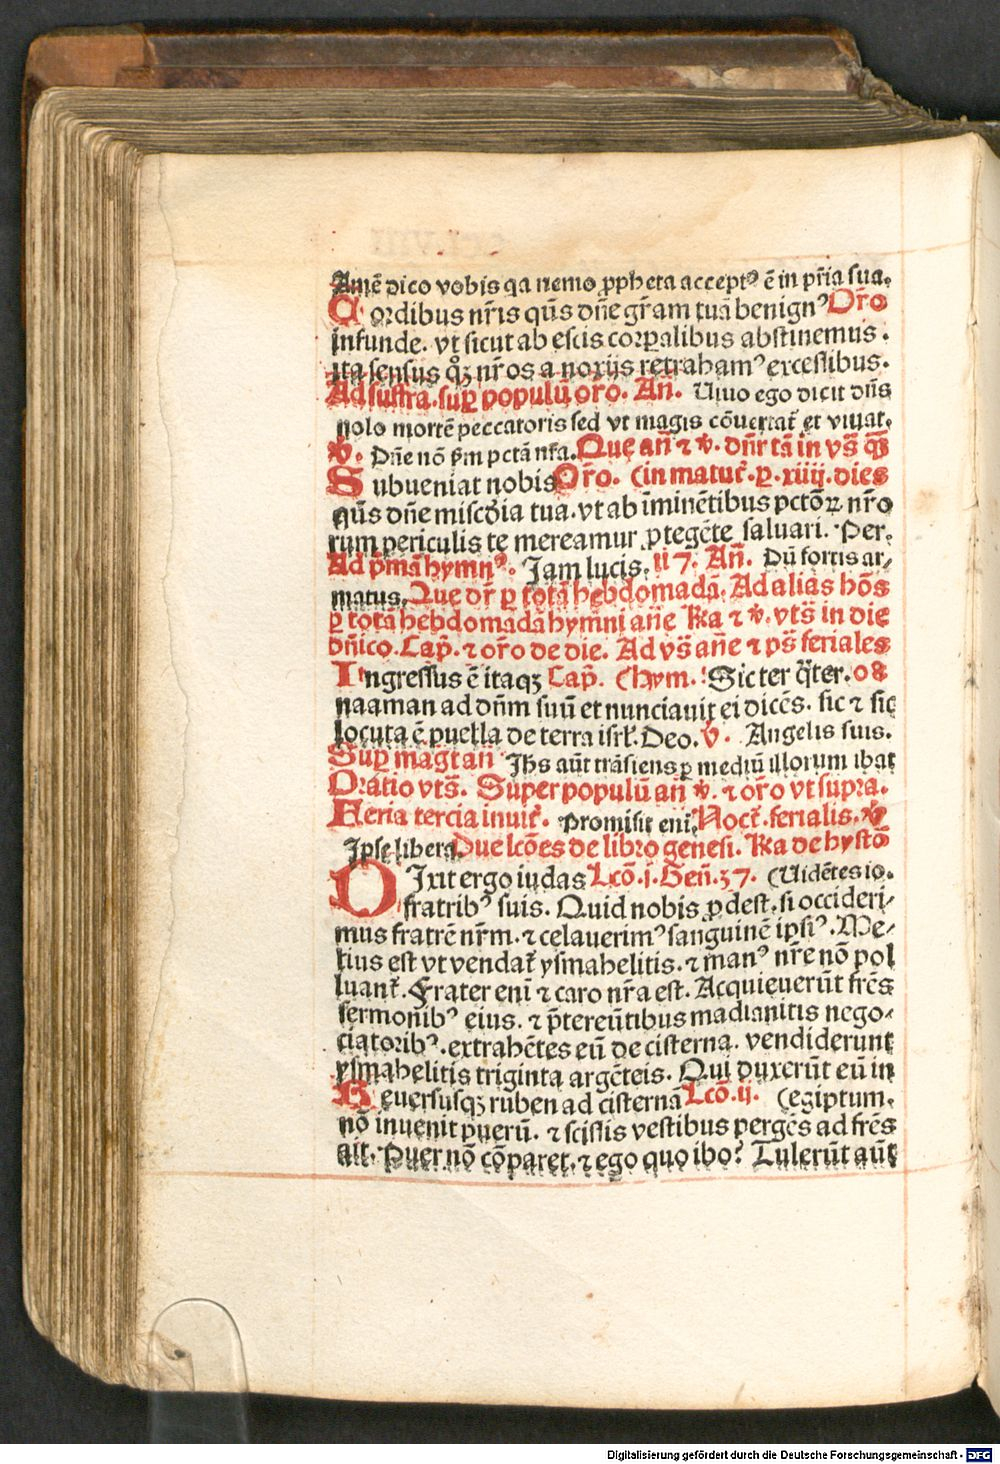 Amē dico vobis qa nemo ꝓpheta acceptꝰ ē in pr̄ia sua.
Cordibus nr̄is qūs dn̄e gr̄am tuā benignꝰ Or̄o
infunde. vt sicut ab escis corꝑalibus abstinemus.
ita sensus qͦꝫ nr̄os a noxijs retrahamꝰ excessibus.
Ad suffra. suꝑ populū or̄o. An̄. Viuo ego dicit dn̄s
nolo mortē peccatoris sed vt magis cōuertat᷑ et viuat.
℣. Dn̄e nō ẜm pctā nr̄a. Que an̄ ⁊ ℣. dn̄r tā in vs̄ qꝫ̄
Subueniat nobis Or̄o. (in matut᷑. ꝑ. xiiij. dies
qūs dn̄e misc̄dia tua. vt ab im̄inētibus pctōꝝ nr̄o
rum periculis te mereamur ꝓtegēte saluari. Per.
Ad pm̄ā hymnꝰ. Jam lucis. ii 7. An̄. Dū fortis ar⸗
matus. Que dr̄ ꝑ totā hebdomadā. Ad alias hōs
ꝑ totā hebdomadā hymni an̄e Ka ⁊ ℣. vts̄ in die
dn̄ico. Cap̄. ⁊ or̄o de die. Ad vs̄ an̄e ⁊ ps̄ feriales
Ingressus ē itaqꝫ Cap̄. (hym. Sic ter q̄ter. o8
naaman ad dn̄m suū et nunciauit ei dicēs. sic ⁊ sic
locuta ē puella de terra isrl̄. Deo. ℣. Angelis suis.
Suꝑ magt̄ an̄ Jhs aūt trāsiens ꝑ mediū illorum ibat
Oratio vts̄. Super populū an̄ ℣. ⁊ or̄o vt supra.
Feria tercia inuit᷑. Promisit eni. Noct᷑. ferialis. ℣
Jpse libera. Due lcōes de libro genesi. Ka de hystō
DIxit ergo iudas Lcō. i. Gen̄. 37. (Vidētes io.
fratribꝰ suis. Quid nobis ꝓdest. si occideri⸗
mus fratrē nr̄m. ⁊ celauerimꝰ sanguinē ipsiꝰ. Me⸗
lius est vt vendat᷑ ysmahelitis. ⁊ manꝰ nr̄e nō pol
luant᷑. Frater eni ⁊ caro nr̄a est. Acquieuerūt fr̄es
sermonibꝰ eius. ⁊ p̄tereūtibus madianitis nego⸗
ciatoribꝰ. extrahētes eū de cisterna. vendiderunt
ysmahelitis triginta argēteis. Qui duxerūt eū in
Reuersusqꝫ ruben ad cisternā Lcō. ij. (egiptum.
nō inuenit puerū. ⁊ scissis vestibus pergēs ad fr̄es
ait. Puer nō cōparet. ⁊ ego quo ibo? Tulerūt aūt
Digitalisierung gefördert durch die Deutsche Forschungsgemeinschaft - DFG